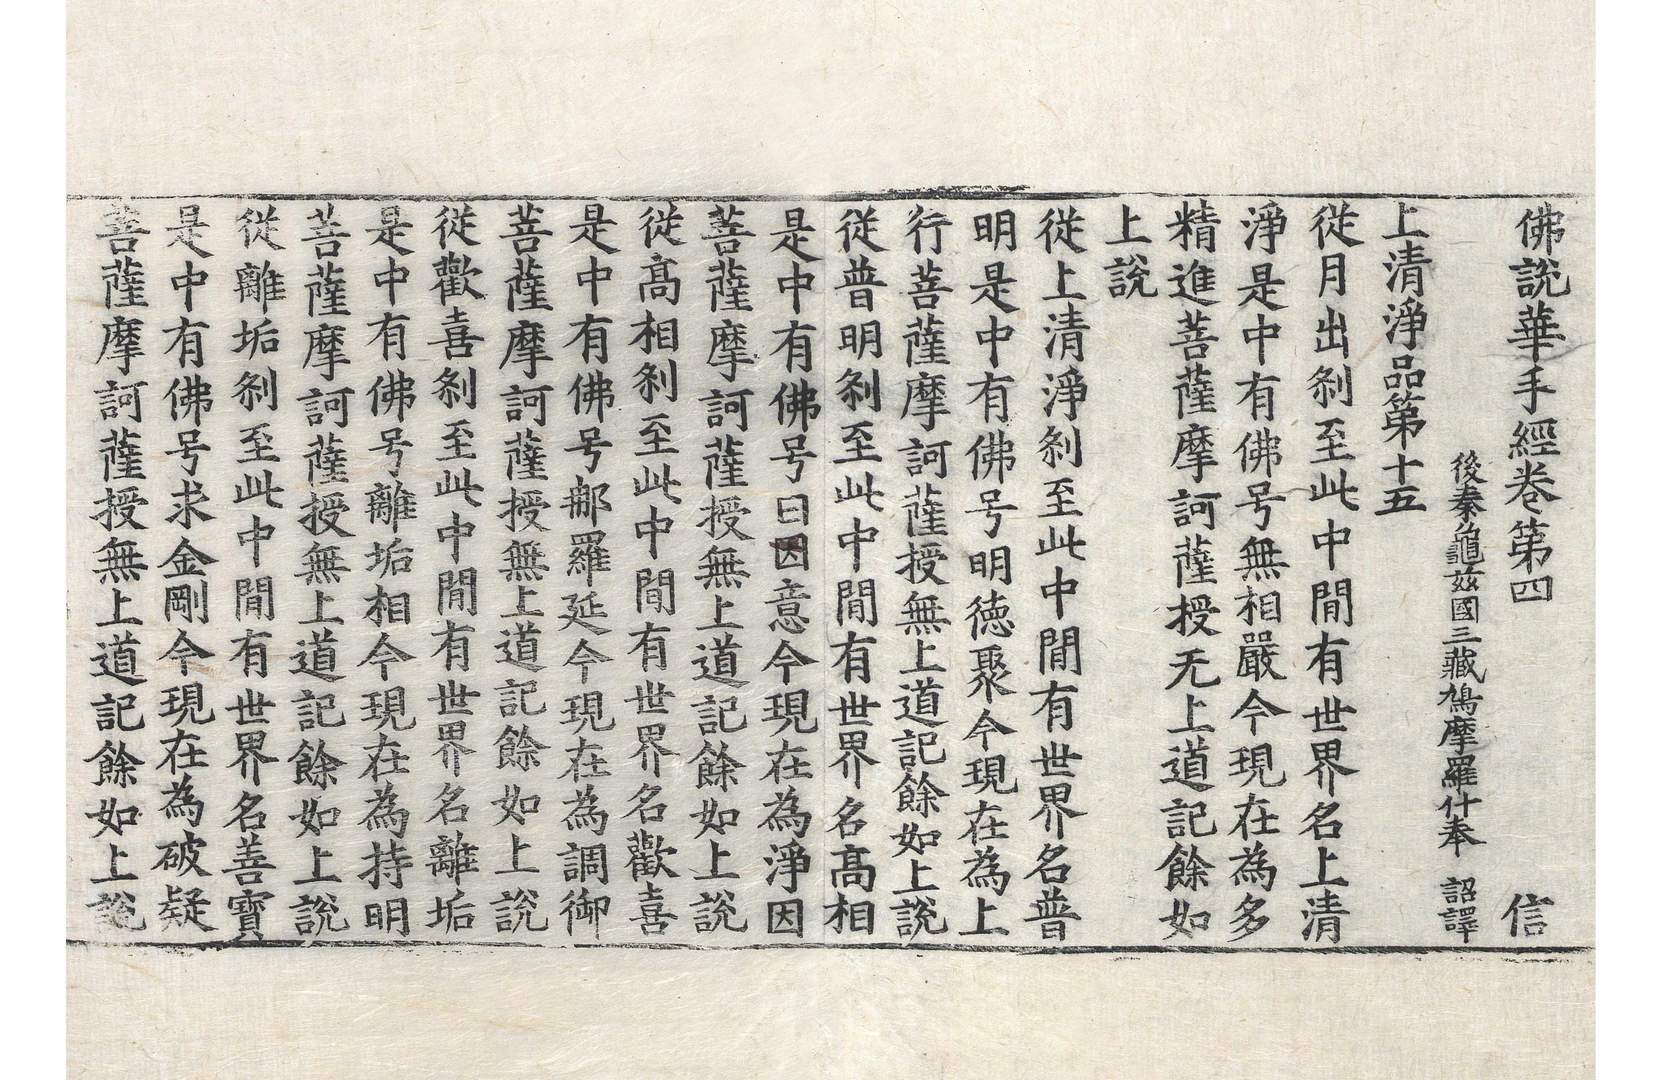 佛說華手經卷第四 信
後秦龜茲國三藏鳩摩羅什奉 詔譯
上清淨品第十五
從月出剎至此中閒有世界名上清
淨是中有佛号無相嚴今現在為多
精進菩薩摩訶薩授无上道記餘如
上說
從上清淨剎至此中閒有世界名普
明是中有佛号明德聚今現在為上
行菩薩摩訶薩授無上道記餘如上說
從普明剎至此中閒有世界名高相
是中有佛号曰因意今現在為淨因
菩薩摩訶薩授無上道記餘如上說
從高相剎至此中閒有世界名歡喜
是中有佛号郍羅延今現在為調御
菩薩摩訶薩授無上道記餘如上說
從歡喜剎至此中閒有世界名離垢
是中有佛号離垢相今現在為持明
菩薩摩訶薩授無上道記餘如上說
從離垢剎至此中閒有世界名善寶
是中有佛号求金剛今現在為破疑
菩薩摩訶薩授無上道記餘如上說